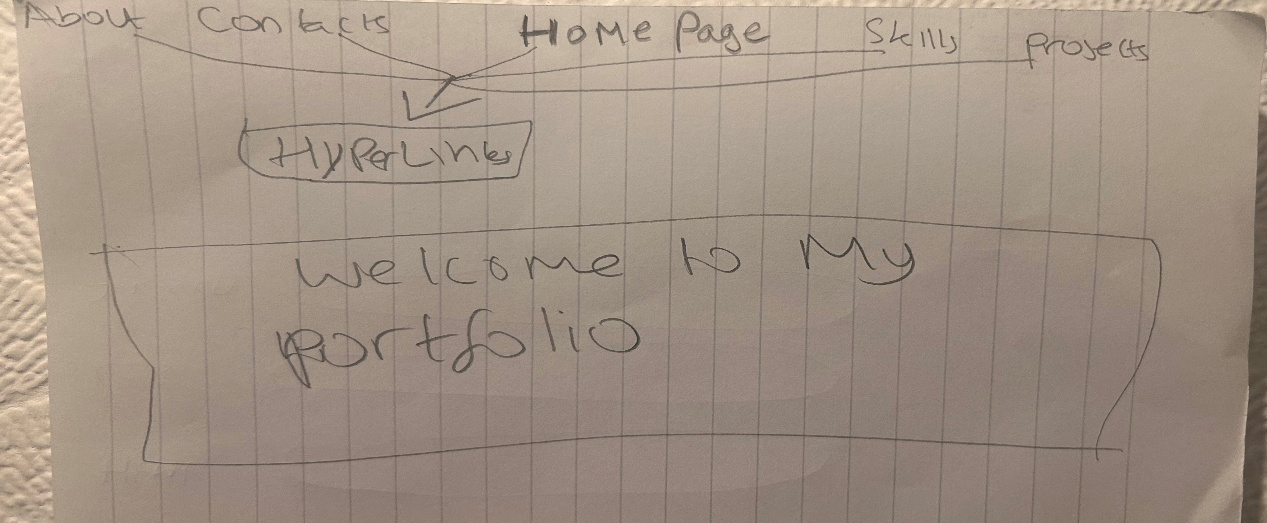 About Contacts Home Page Skills Projects
HyperLinks
Welcome to My
portfolio